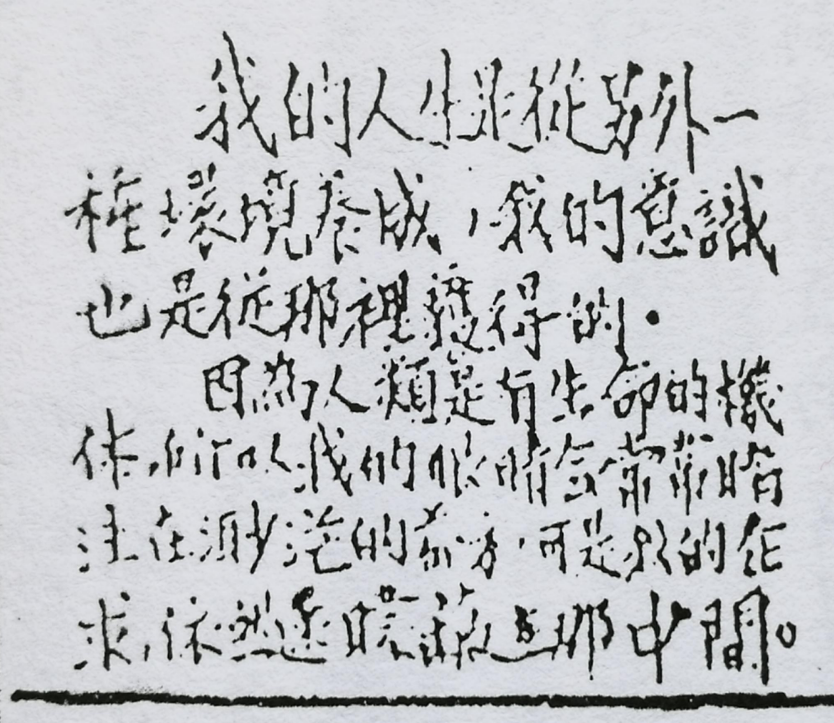 我的人生是從另外一
種環境養成，我的意識
也是從那裡獲得的．
因為人類是有生命的機
体，所以我的眼睛会常常暗
注在渺茫的前方，可是我的企
求，依然是曖藏進那中間。